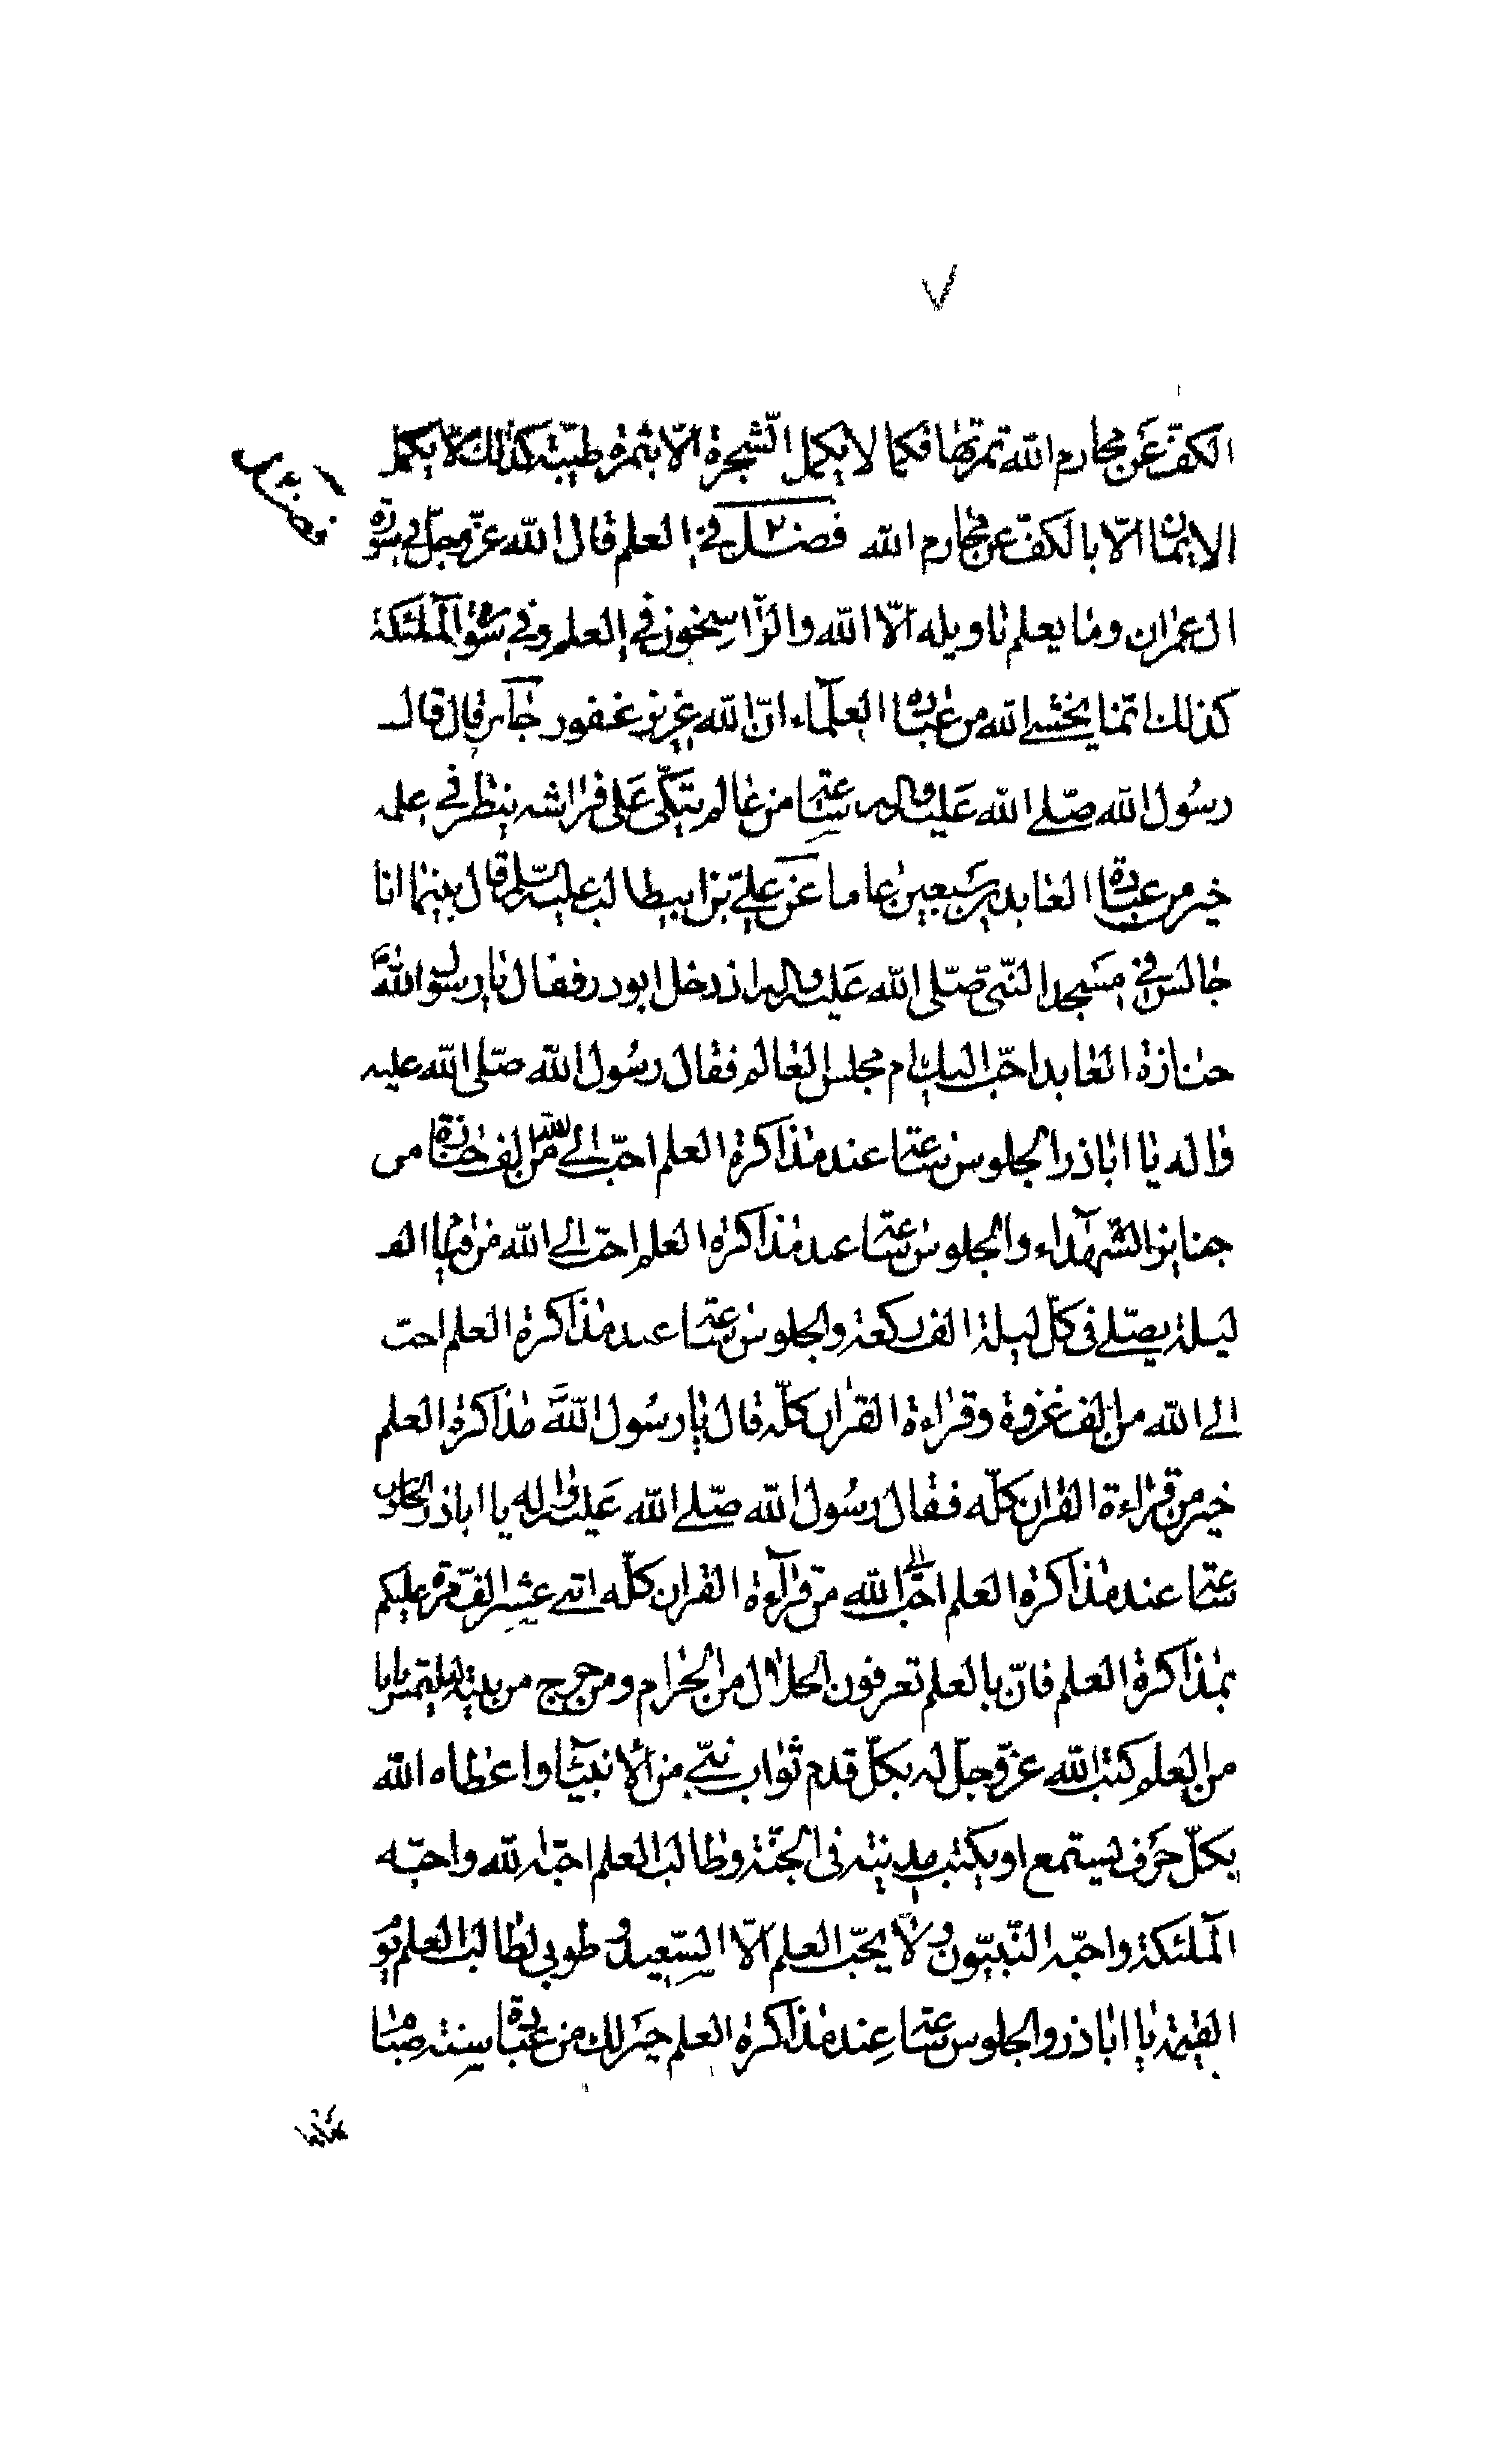 ٧
الكفّ عَن محارم الله ثمرتها فكما لا يكمل الشّجرة الّا بثمرة طيّبة كذلك لا يكمل
الايمان الّا بالكفّ عن محارم الله فصل ٢ في العلم قال الله عزّ وجلّ في سورة
ال عمران وما يعلم تاويله الّا الله والرّاسخون في العلم وفي سورة الملئكة
كذلك انّما يخشى الله من عباده العلمآء انّ الله عزيز غفور جابر قال قال
رسُول الله صلّى الله عَليه واله ساعة من عالم يتكّى عَلى فراشه ينظر في علمه
خير من عبادة العابد سَبعين عاما عَن عليّ بن ابيطالب عليه السّلم قال بينما انا
جالس في مسَجد النّبي صلّى الله عَليه واله اذ دخل ابوذر فقال يا رسول اللهَ
جنازة العابد احبّ اليك ام مجلس العالم فقال رسُول الله صلّى الله عليه
واله يا اباذر الجلوس ساعة عند مذاكرة العلم احبّ الى الله من الف جنازة من
جنايز الشّهدآء والجلوس ساعة عند مذاكرة العلم احبّ الى الله من قيام الف
ليلة يصلّى في كلّ ليلة الف ركعة والجلوس ساعة عند مذاكرة العلم احبّ
الى الله من الف غزوة وقراءة القران كلّه قال يا رسُول اللهَ مذاكرة العلم
خير من قراءة القران كلّه فقال رسُول الله صلّى الله عَليه واله يا اباذر الجلوس
ساعة عند مذاكرة العلم احبّ الى الله من قرآءة القران كلّه اثنى عشر الف مرّة عليكم
بمذاكرة العلم فانّ بالعلم تعرفون الحلال من الحرام ومن خرج من بيته ليلتمس بابا
من العلم كتب الله عزّ وجلّ له بكلّ قدم ثواب نبيّ من الانبيآء واعطاه الله
بكلّ حَرف يستمع او يكتب مدينة في الجنّة وطالب العلم احبّه الله واحبّه
الملئكة واحبّه النّبيّون ولا يحبّ العلم الّا السّعيد وطوبى لطالب العلم يوم
القيمة يا اباذر والجلوس ساعة عِند مذاكرة العلم خير لك من عبادة سنة صيام